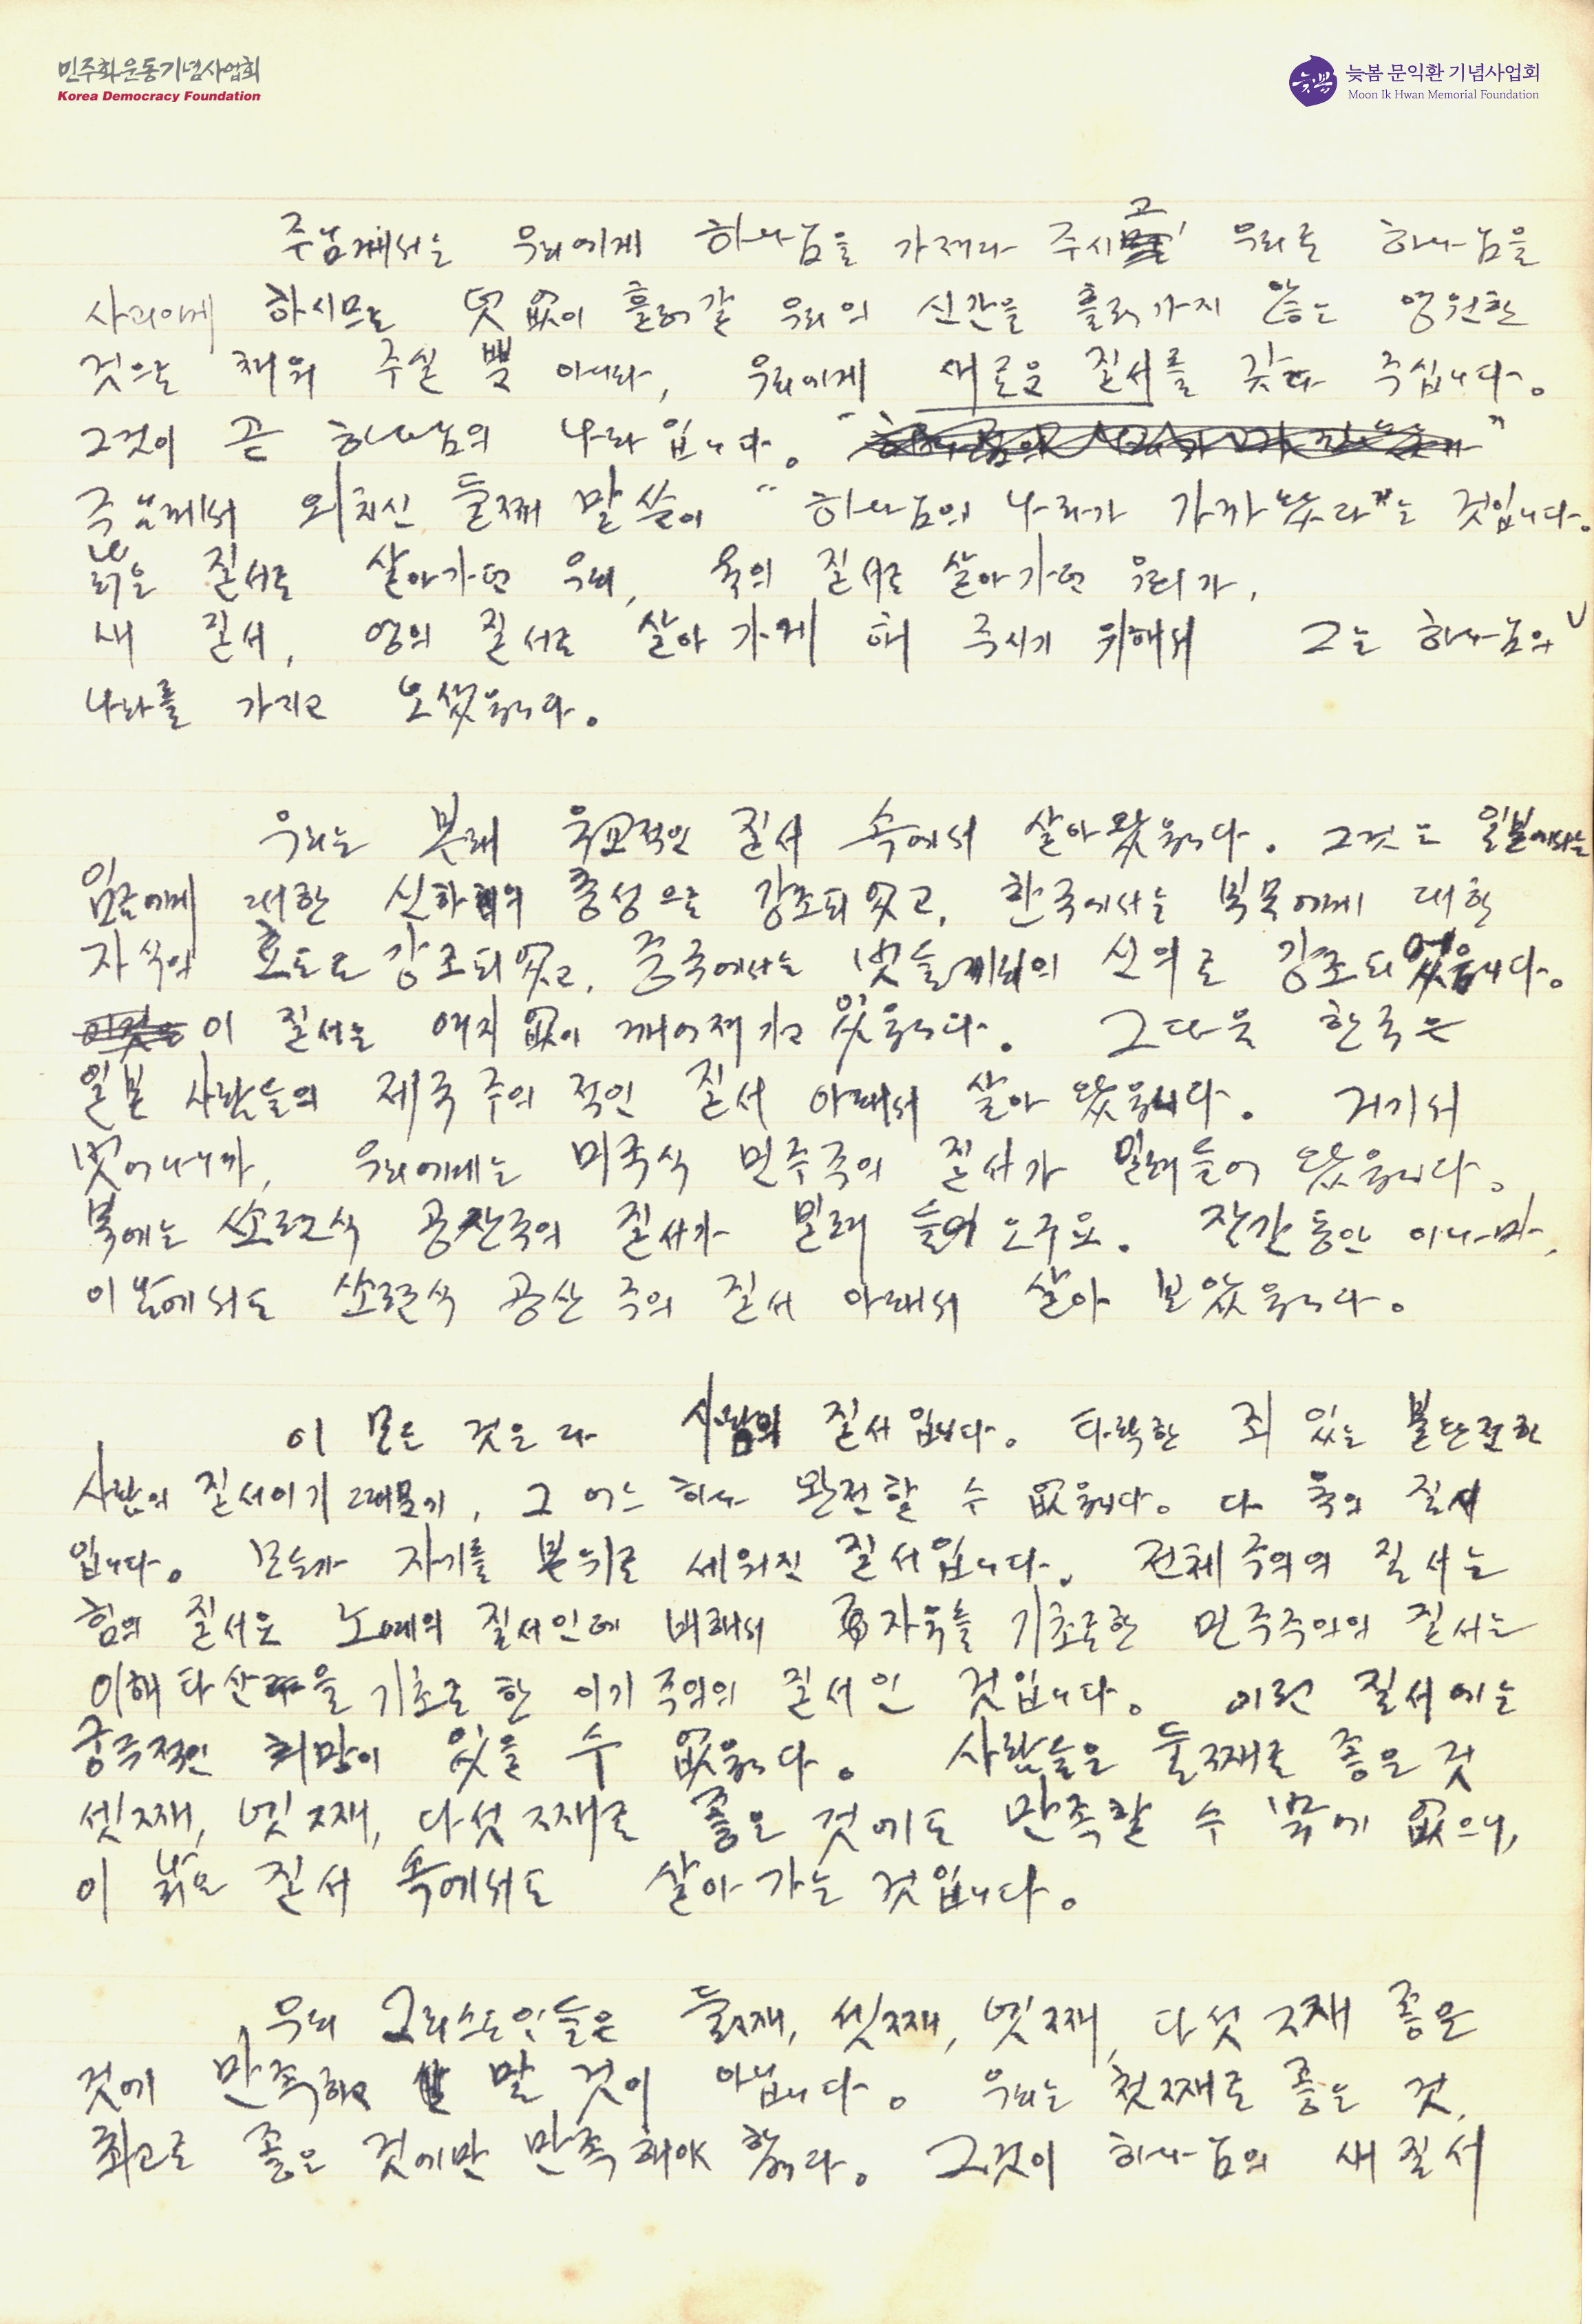 민주화운동기념사업회
Korea Democracy Foundation
늦봄 문익환 기념사업회
Moon Ik Hwan Memorial Foundation
주님께서는 우리에게 하나님을 가져다 주시고 우리로 하나님을
하시므로 덧없이 흘러갈 우리의 시간을 흘러가지 않는 영원한
것으로 채워 주실 뿐 아니라, 우리에게 새로운 질서를 갖다 주십니다.
그것이 곧 하나님의 나라입니다.
주님께서 외치신 둘째 말씀이 "하나님의 나라가 가까왔다"는 것입니다.
낡은 질서로 살아가던 우리, 육의 질서로 살아가던 우리가,
새 질서, 영의 질서로 살아가게 해 주시기 위해서 그는 하나님의
나라를 가지고 오셨읍니다.
우리는 본래 유교적인 질서 속에서 살아왔읍니다. 그것은 일본에서는
임금에게 대한 신하의 충성으로 강조되었고, 한국에서는 부모에게 대한
자식의 효도로 강조되었고, 중국에서는 벗들끼리의 신의로 강조되었읍니다.
이 질서는 여지없이 깨어져 가고 있읍니다. 그다음 한국은
일본 사람들의 제국주의적인 질서 아래서 살아 왔읍니다. 거기서
벗어나니까, 우리에게는 미국식 민주주의 질서가 밀려들어 왔읍니다.
북에는 쏘련식 공산주의 질서가 밀려 들어 오구요. 잠간 동안이나마,
이남에서도 쏘련식 공산주의 질서 아래서 살아 보았읍니다.
이 모든 것은 다 사람의 질서입니다. 타락한 죄 있는 불완전한
사람의 질서이기 때문에, 그 어느 하나 완전할 수 없읍니다. 다 육의 질서
입니다. 모두가 자기를 본위로 세워진 질서입니다. 전체주의의 질서는
힘의 질서요 노예의 질서인데 비해서 자유를 기초로한 민주주의의 질서는
이해타산을 기초로 한 이기주의의 질서인 것입니다. 이런 질서에는
궁극적인 희망이 있을 수 없읍니다. 사람들은 둘째로 좋은 것
셋째, 넷째, 다섯째로 좋은 것에도 만족할 수 밖에 없으니,
이 낡은 질서 속에서도 살아가는 것입니다.
우리 그리스도인들은 둘째, 셋째, 넷째, 다섯째 좋은
것에 만족하고 말 것이 아닙니다. 우리는 첫째로 좋은 것,
최고로 좋은 것에만 만족해야 합니다. 그것이 하나님의 새 질서